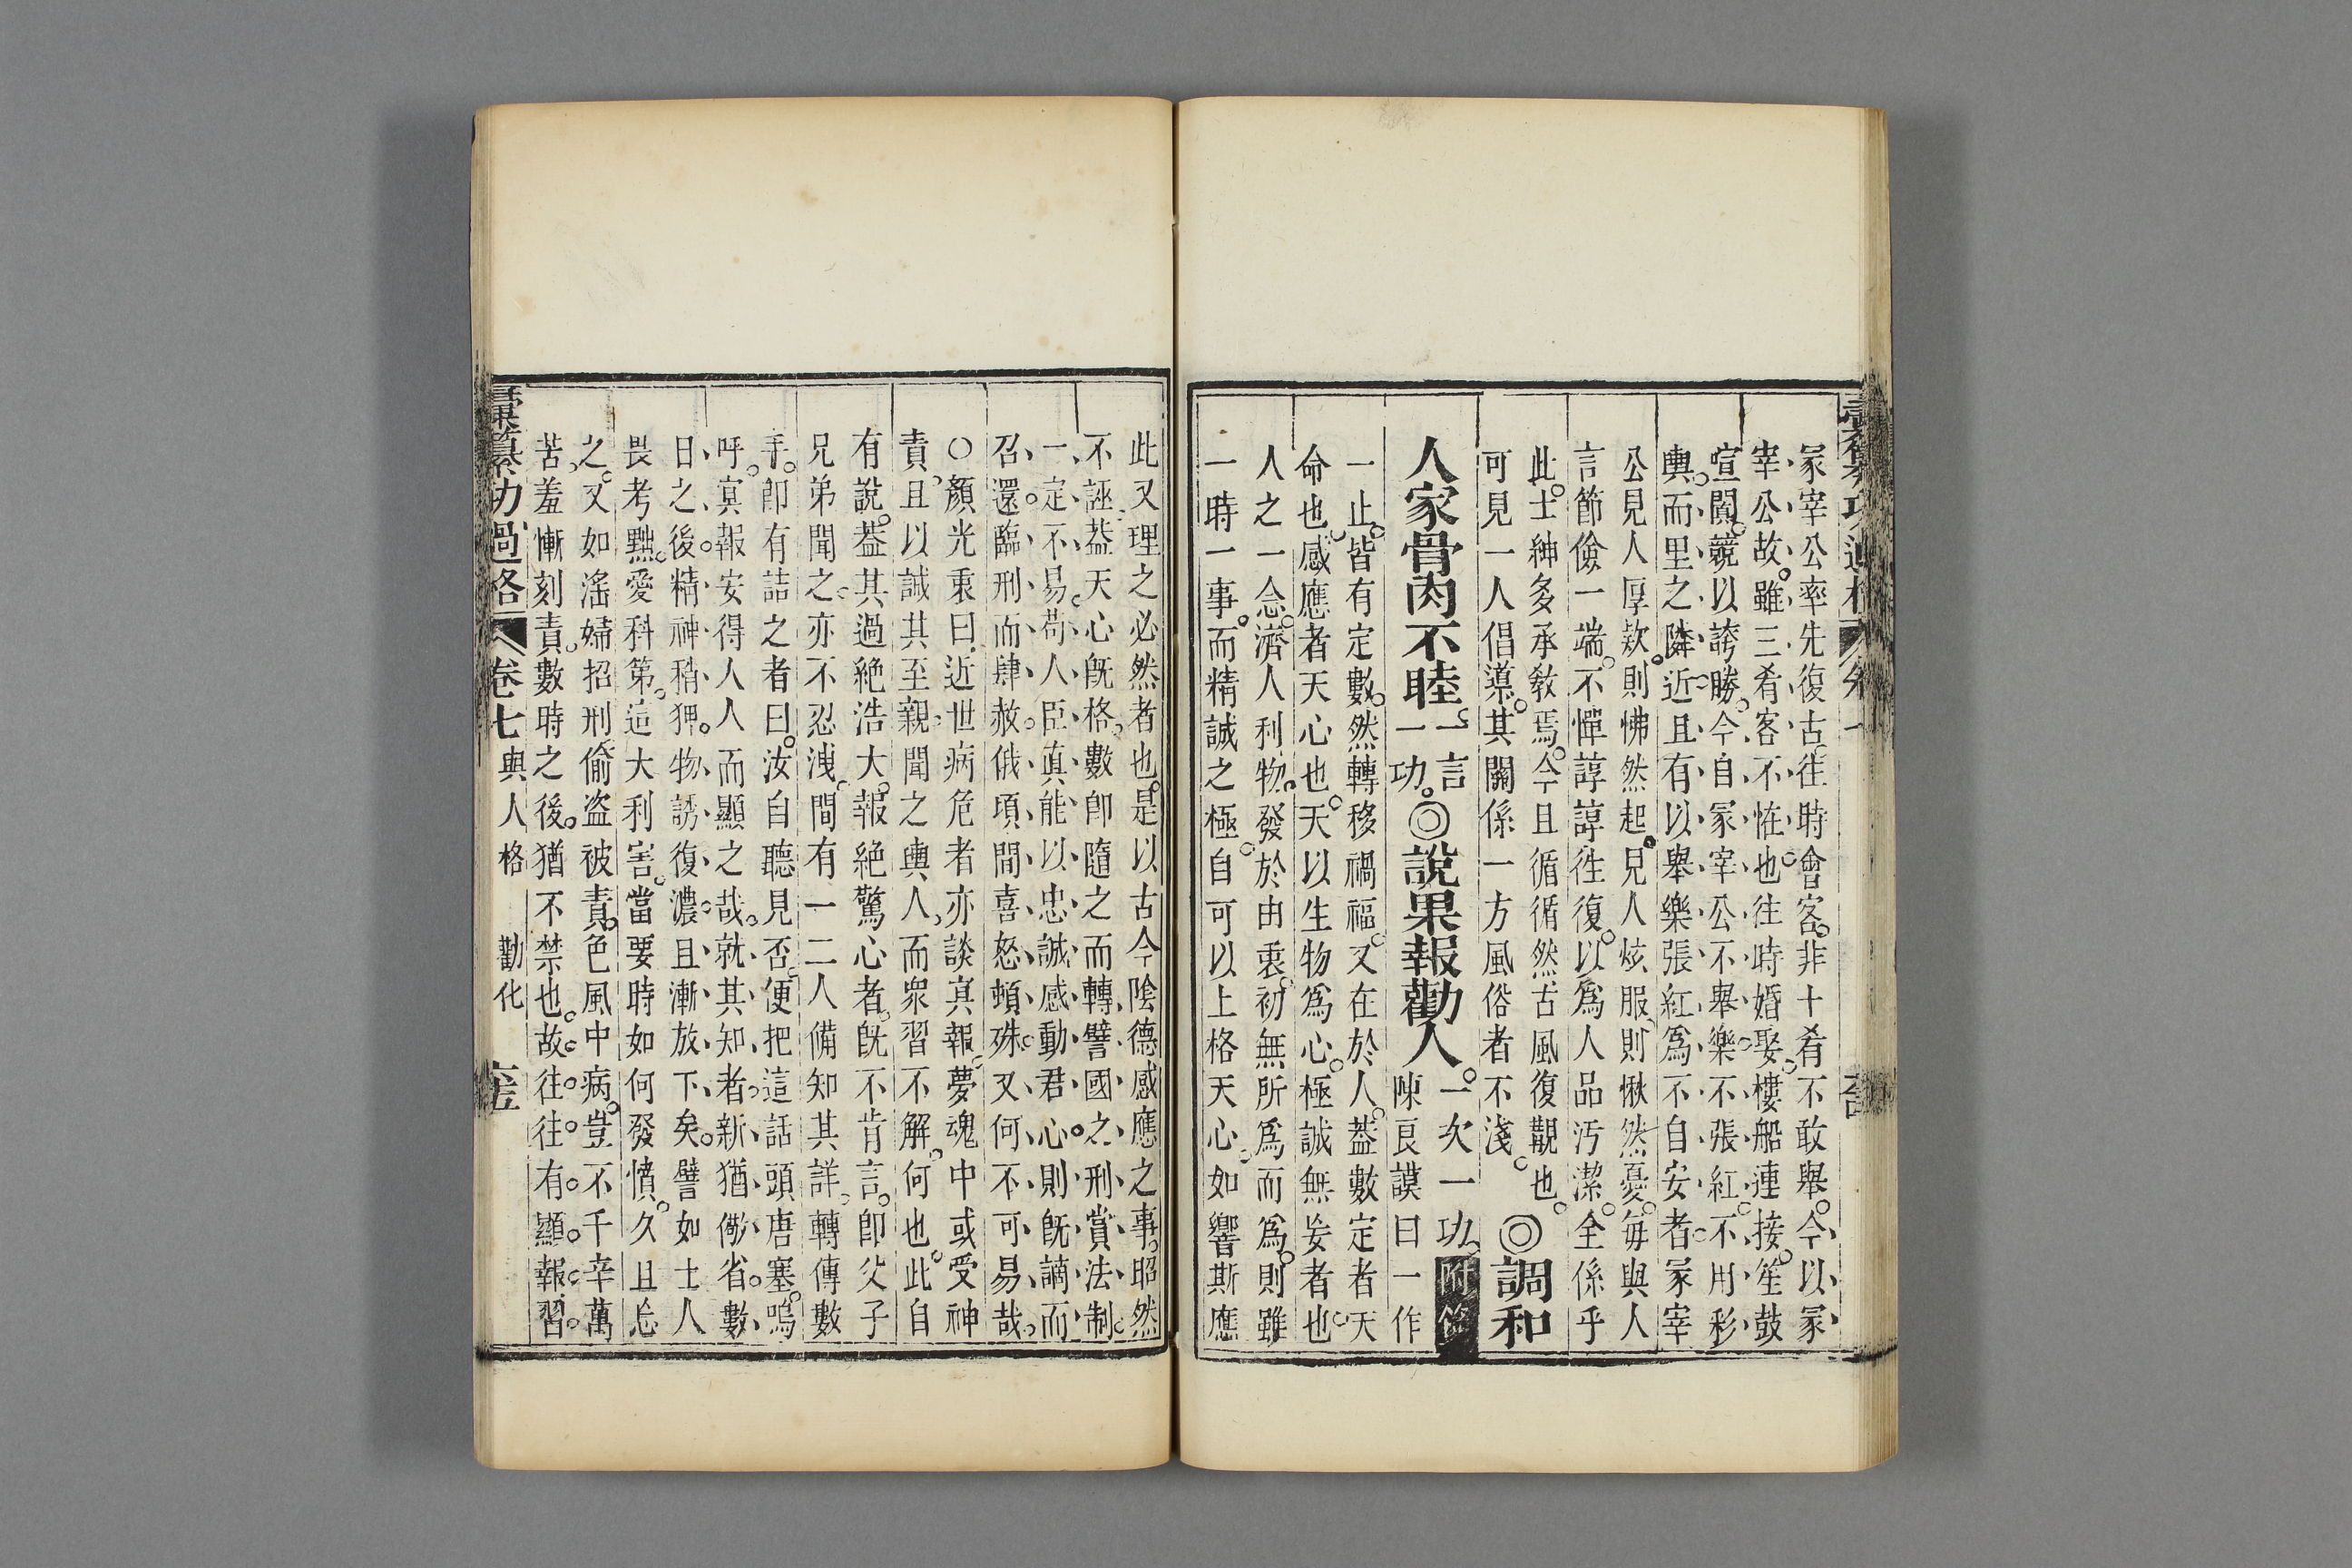 冡宰公率先復古徃時會客非十肴不敢舉今以冡
宰公故雖三肴客不恠也往時婚娶樓船連接笙鼓
喧闐競以誇勝今自冡宰公不舉樂不張紅不用彩
輿而里之隣近且有以舉樂張紅爲不自安者冡宰
公見人厚欵則怫然起見人炫服則愀然憂每與人
言節儉一端不憚諄諄徃復以爲人品汚潔全係乎
此士紳多承敎焉今且循循然古風復覩也
可見一人倡導其關係一方風俗者不淺◎調和
人家骨肉不睦一言一功◎說果報勸人一次一功附箴陳良謨曰一作
一止皆有定數然轉移禍福又在於人葢數定者天
命也感應者天心也天以生物爲心極誠無妄者也
人之一念濟人利物發於由衷初無所爲而爲則雖
一時一事而精誠之極自可以上格天心如響斯應
此又理之必然者也是以古今陰德感應之事昭然
不誣葢天心旣格數卽隨之而轉譬國之刑賞法制
一定不易苟人臣眞能以忠誠感動君心則旣謫而
召還臨刑而肆赦俄頃間喜怒頓殊又何不可易哉
○顏光衷曰近世病危者亦談冥報夢魂中或受神
責且以誠其至親聞之輿人而眾習不解何也此自
有說葢其過絶浩大報絶驚心者旣不肯言卽父子
兄弟聞之亦不忍洩間有一二人備知其詳轉傳數
手卽有詰之者曰汝自聽見否便把這話頭唐塞嗚
呼冥報安得人人而顯之哉就其知者新猶儆省數
日之後精神稍狎物誘復濃且漸放下矣譬如士人
畏考黜愛科第這大利害當要時如何發憤久且忘
之又如滛婦招刑偷盗被責色風中病豈不千辛萬
苦羞慚刻責數時之後猶不禁也故往往有顯報習
彙纂功過格 卷七 與人格 勸化 六五